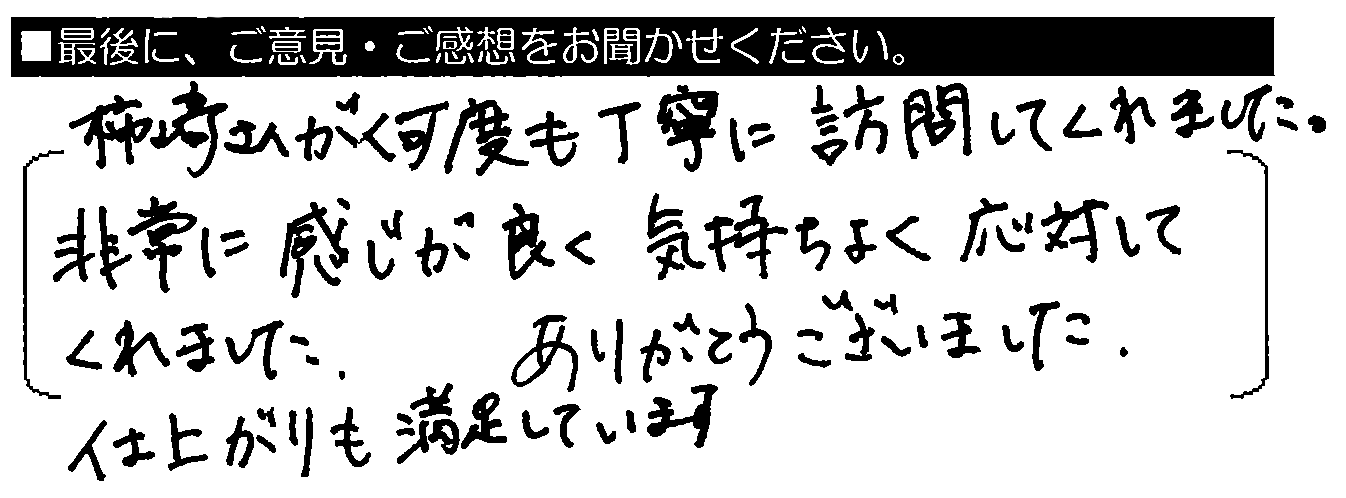 ■最後に、ご意見・ご感想をお聞かせください。
柿崎さんが何度も丁寧に訪問してくれました。
非常に感じが良く 気持ちよく 応対して
くれました. ありがとうございました.
仕上がりも満足しています